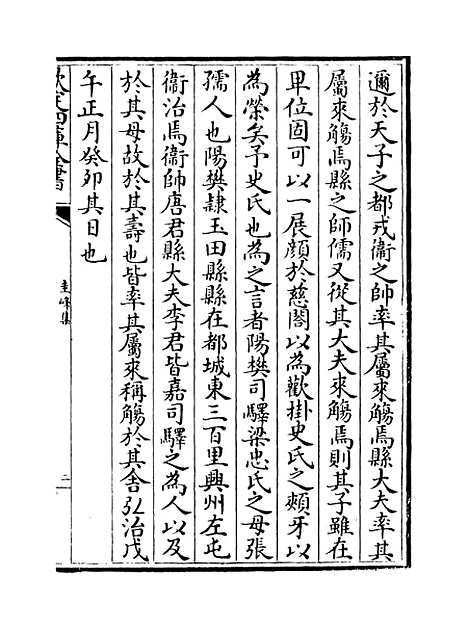 邇於天子之都戎衛之帥率其屬來觴焉縣大夫率其
屬來觴焉縣之師儒又從其大夫來觴焉則其子雖在
卑位固可以一展顔於慈闈以為歡掛史氏之頰牙以
為榮矣予史氏也為之言者陽樊司驛梁忠氏之母張
孺人也陽樊隷玉田縣縣在都城東三百里興州左屯
衞治焉衞帥唐君縣大夫李君皆嘉司驛之為人以及
於其母故於其壽也皆率其屬來稱觴於其舎弘治戊
午正月癸卯其日也
欽定四庫全書
圭峰集
二